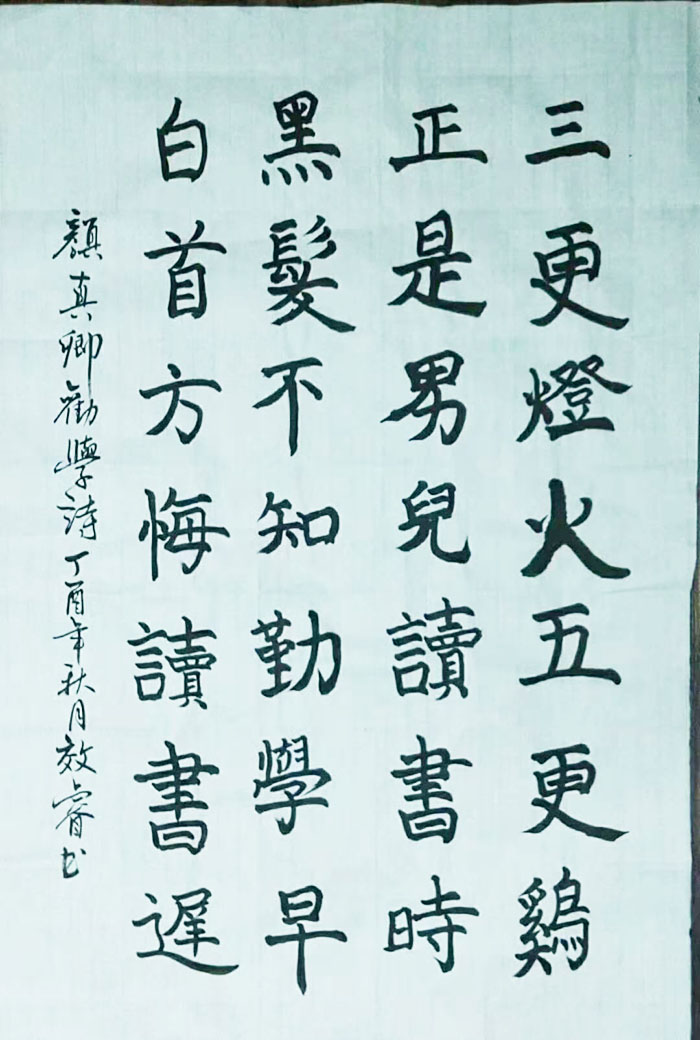 三更燈火五更鷄
正是男兒讀書時
黑髮不知勤學早
白首方悔讀書遲
顏真卿勸學詩丁酉年秋月效睿书